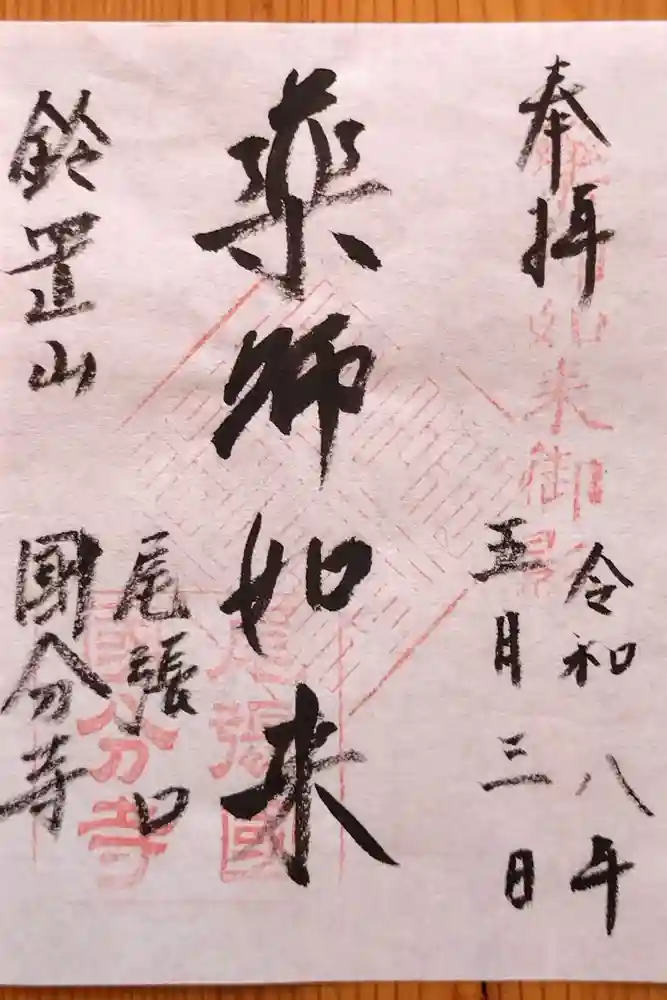 奉拝
令和八年
五月三日
薬師如来
尾張
国分寺
鈴置山
如来御影
尾張國
國分寺